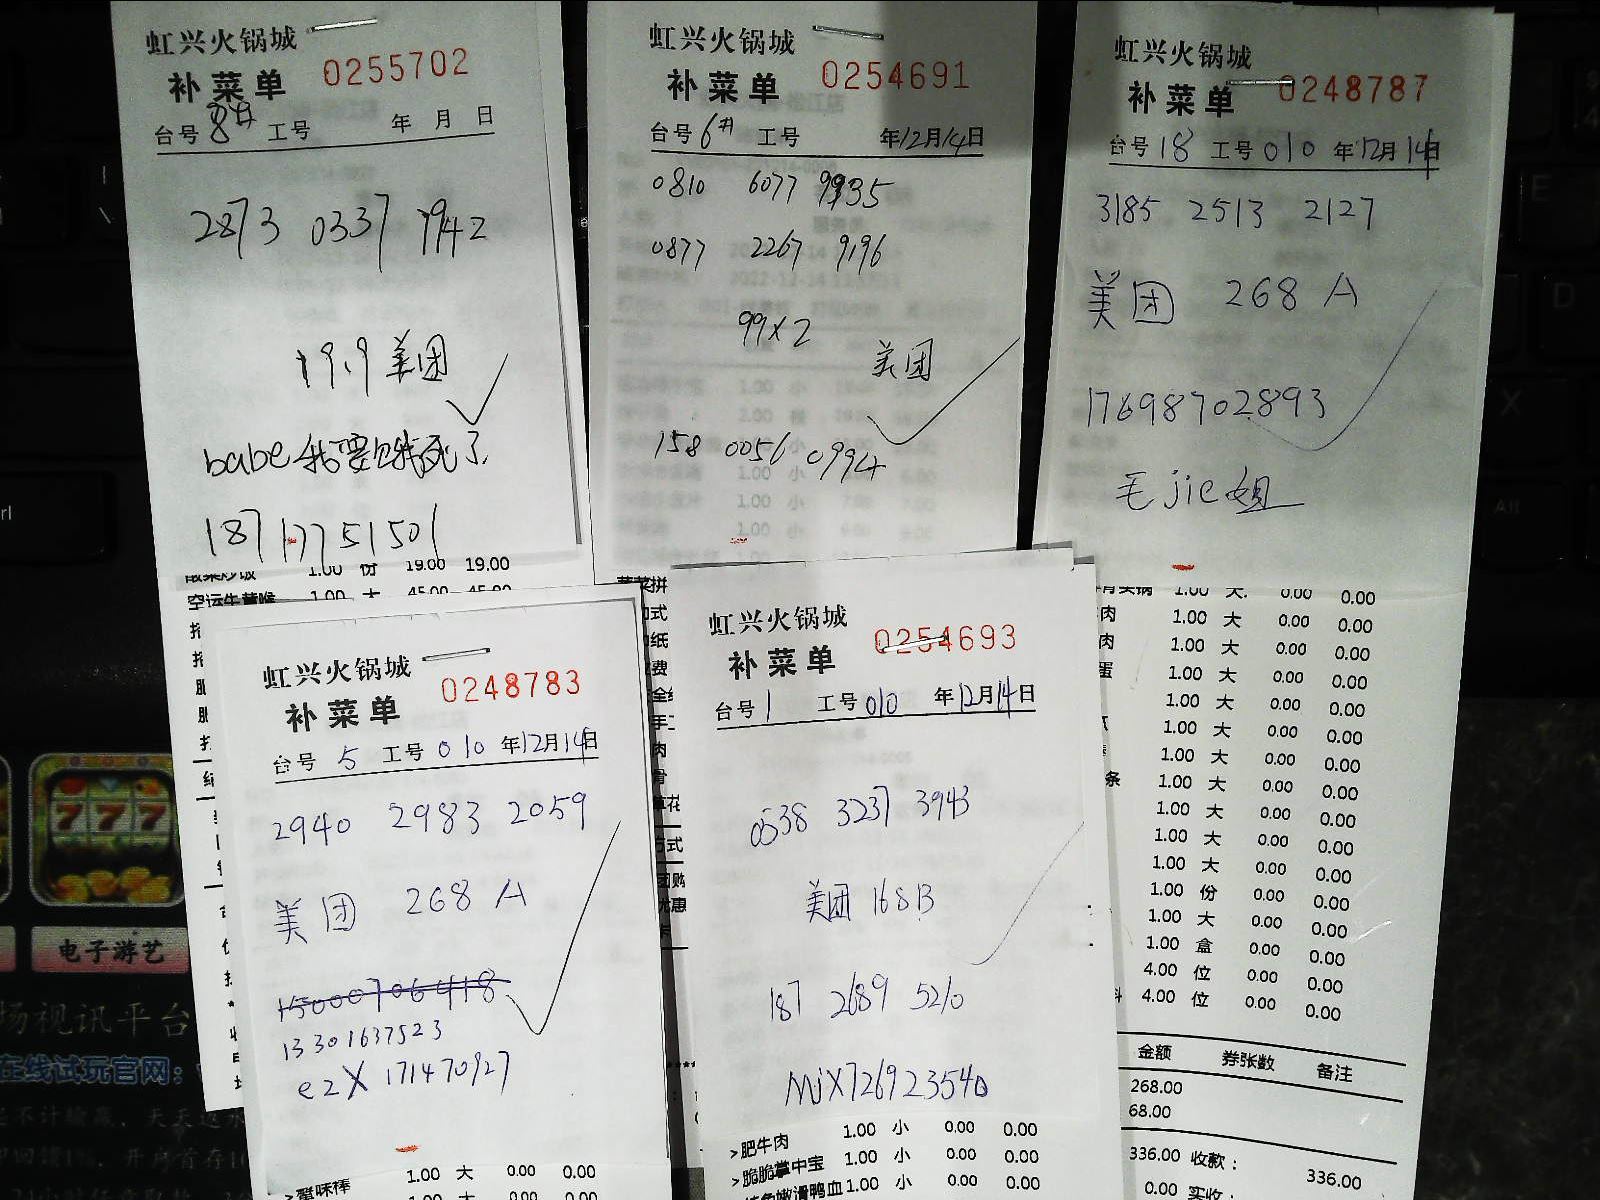 虹兴火锅城
补菜单 0255702
台号 8# 工号 年 月 日
2873 0337 1942
19.9 美团
187 1775 1501
19.00 19.00
虹兴火锅城
补菜单 0254691
台号 6# 工号 年12月14日
0810 6077 9935
0877 2267 9196
99X2
美团
158 0056 0994
虹兴火锅城
补菜单 0248787
台号 18 工号 010 年12月14日
3185 2513 2127
美团 268 A
17698702893
毛jie姐
1.00 大 0.00 0.00
肉 1.00 大 0.00 0.00
肉 1.00 大 0.00 0.00
蛋 1.00 大 0.00 0.00
1.00 大 0.00 0.00
1.00 大 0.00 0.00
1.00 大 0.00 0.00
条 1.00 大 0.00 0.00
1.00 大 0.00 0.00
1.00 大 0.00 0.00
1.00 大 0.00 0.00
1.00 份 0.00 0.00
1.00 大 0.00 0.00
1.00 盒 0.00 0.00
4.00 位 0.00 0.00
料 4.00 位 0.00 0.00
金额 券张数 备注
268.00
68.00
336.00 收款: 336.00
0.00 实收:
虹兴火锅城
补菜单 0248783
台号 5 工号 010 年12月14日
2940 2983 2059
美团 268 A
15000706418
13301637523
e2X 171470927
>蟹味棒 1.00 大 0.00 0.00
虹兴火锅城
补菜单 0254693
台号 1 工号 010 年12月14日
0538 3237 3943
美团 168B
187 2689 5210
MjX726923540
>肥牛肉 1.00 小 0.00 0.00
>脆脆掌中宝 1.00 小 0.00 0.00
嫩滑鸭血 1.00 小 0.00 0.00
777
电子游艺
场视讯平台
在线试玩官网: